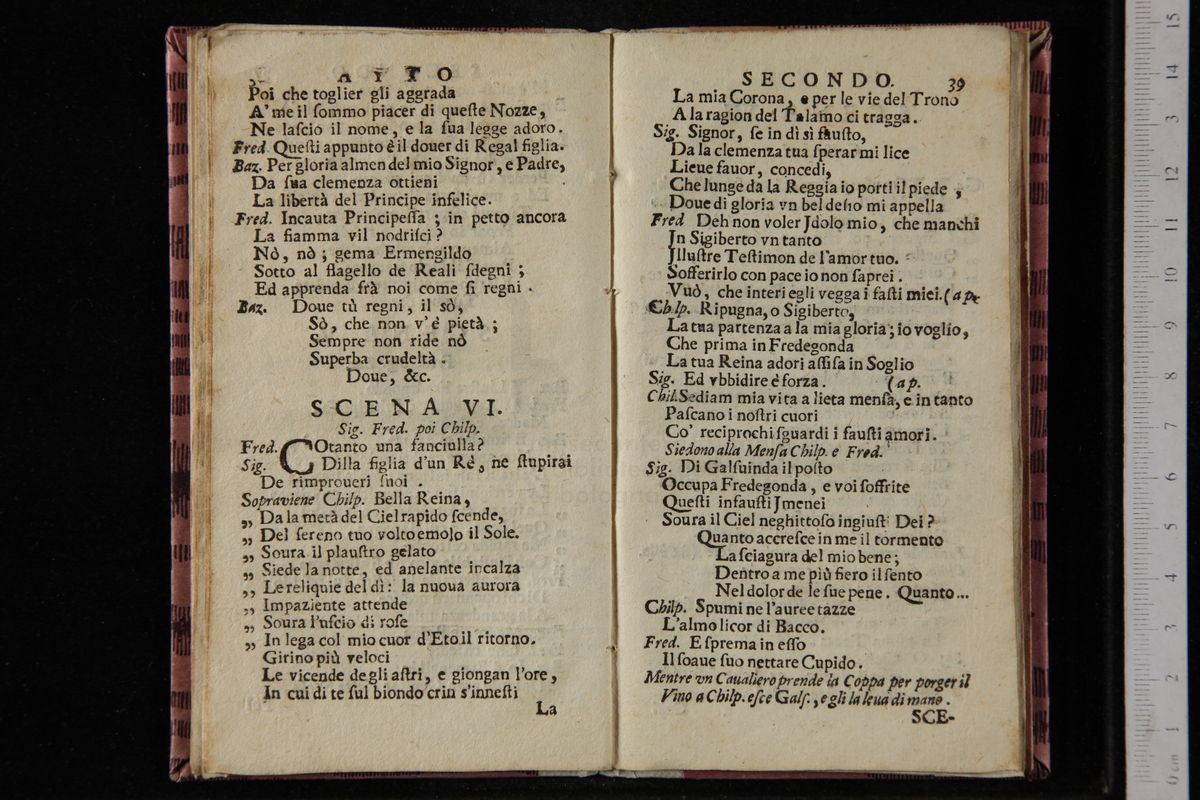 ATTO
Poi che toglier gli aggrada
A' me il ſommo piacer di queſte Nozze,
Ne laſcio il nome, e la ſua legge adoro.
Fred. Queſti appunto è il douer di Regal figlia.
Baz. Per gloria almen del mio Signor, e Padre,
Da ſua clemenza ottieni
La libertà del Principe infelice.
Fred. Incauta Principeſſa ; in petto ancora
La fiamma vil nodriſci ?
Nò, nò ; gema Ermengildo
Sotto al flagello de Reali ſdegni ;
Ed apprenda frà noi come ſi regni .
Baz. Doue tù regni, il sò,
Sò, che non v'è pietà ;
Sempre non ride nò
Superba crudeltà .
Doue, &c.
SCENA VI.
Sig. Fred. poi Chilp.
Fred. COtanto una fanciulla?
Sig. Dilla figlia d'un Rè, ne ſtupirai
De rimproueri ſuoi .
Sopraviene Chilp. Bella Reina,
„ Da la metà del Ciel rapido ſcende,
„ Del ſereno tuo volto emolo il Sole.
„ Soura il plauſtro gelato
„ Siede la notte, ed anelante incalza
„ Le reliquie del dì: la nuoua aurora
„ Impaziente attende
„ Soura l'uſcio di roſe
„ In lega col mio cuor d'Eto il ritorno.
Girino più veloci
Le vicende degli aſtri, e giongan l'ore,
In cui di te ſul biondo crin s'inneſti
La
SECONDO. 39
La mia Corona, e per le vie del Trono
A la ragion del Talamo ci tragga.
Sig. Signor, ſe in dì sì fauſto,
Da la clemenza tua ſperar mi lice
Lieue fauor, concedi,
Che lunge da la Reggia io porti il piede ,
Doue di gloria vn bel deſio mi appella
Fred Deh non voler Jdolo mio, che manchi
Jn Sigiberto vn tanto
Jlluſtre Teſtimon de l'amor tuo.
Sofferirlo con pace io non ſaprei .
Vuò, che interi egli vegga i faſti miei. (ap.
Chlp. Ripugna, o Sigiberto,
La tua partenza a la mia gloria; io voglio,
Che prima in Fredegonda
La tua Reina adori aſſiſa in Soglio
Sig. Ed vbbidire è forza . (ap.
Chil. Sediam mia vita a lieta menſa, e in tanto
Paſcano i noſtri cuori
Co' reciprochi ſguardi i fauſti amori.
Siedono alla Menſa Chilp. e Fred.
Sig. Di Galſuinda il poſto
Occupa Fredegonda , e voi ſoffrite
Queſti infauſti Jmenei
Soura il Ciel neghittoſo ingiuſti Dei ?
Quanto accreſce in me il tormento
La ſciagura del mio bene ;
Dentro a me più fiero il ſento
Nel dolor de le ſue pene. Quanto...
Chilp. Spumi ne l'auree tazze
L'almo licor di Bacco.
Fred. E ſprema in eſſo
Il ſoaue ſuo nettare Cupido.
Mentre vn Caualiero prende la Coppa per porger il
Vino a Chilp. eſce Galſ., e gli la leua di mano .
SCE-